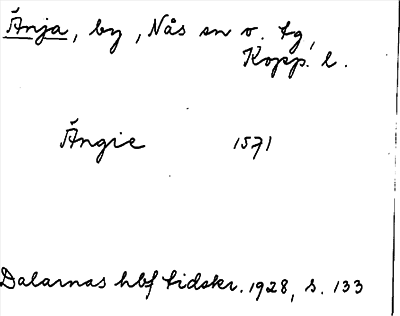 Änja, by, Nås sn v. tg,
Kopp. l.
Ängie 1571
Dalarnas hbf tidskr. 1928, s. 133